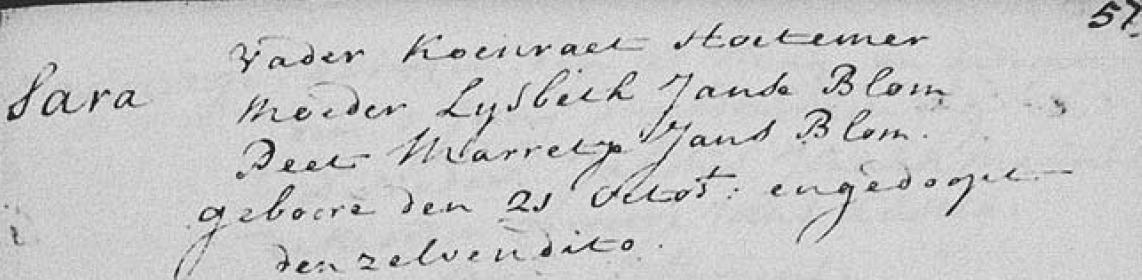 57
Vader Koenraet Stoetemer
Sara
Moeder Lysbeth Janse Blom
Peet Marretje Jans Blom.
geboore den 21 Octob: en gedoopt
den zelven dito.